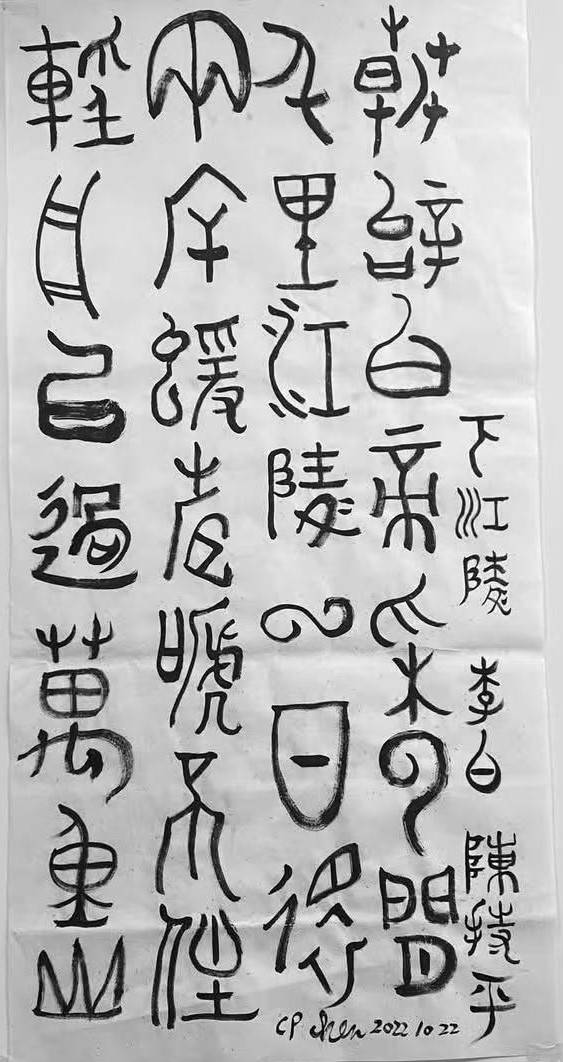 下江陵 李白 陳持平
朝辭白帝采云間
千里江陵一日還
兩岸蝯声嗁不住
輕舟已過萬重山
CP Chen 2022 10 22